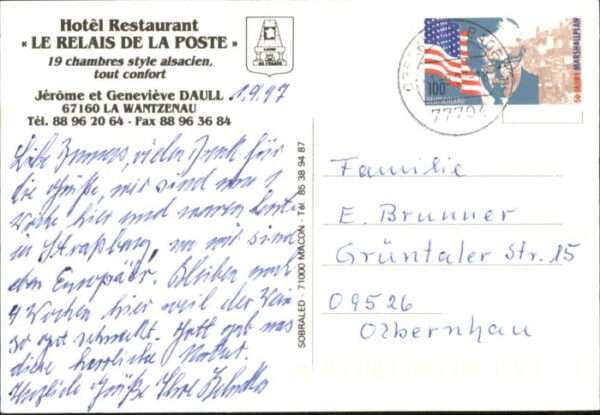 Hotêl Restaurant
« LE RELAIS DE LA POSTE »
19 chambres style alsacien,
tout confort
Jérôme et Geneviève DAULL
67160 LA WANTZENAU
Tél. 88 96 20 64 - Fax 88 96 36 84
1.9.97
vielen Dank für
die Grüße, wir sind nun
Woche hier und waren
in Straßburg, wo wir sind
Europäer. Bleiben noch
4 Wochen hier weil der Wein
so gut schmeckt. Gott gab uns
diese herrliche Natur.
Herzliche Grüße Ihre
SOBRALED - 71000 MACON - Tél. 85 38 94 87
100
DEUTSCHLAND
50 JAHRE MARSHALLPLAN
77704
Familie
E. Brunner
Grüntaler Str. 15
09526
Olbernhau